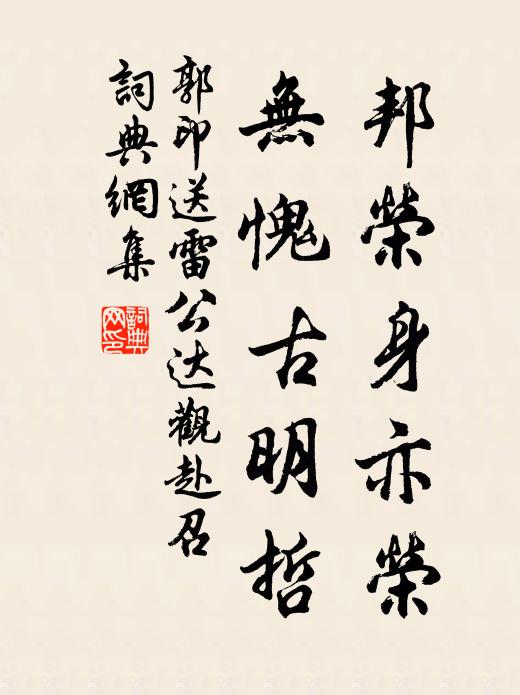 邦榮身亦榮
無愧古明哲
郭印送雷公达觀赴召
詞典網集
詞典
网印